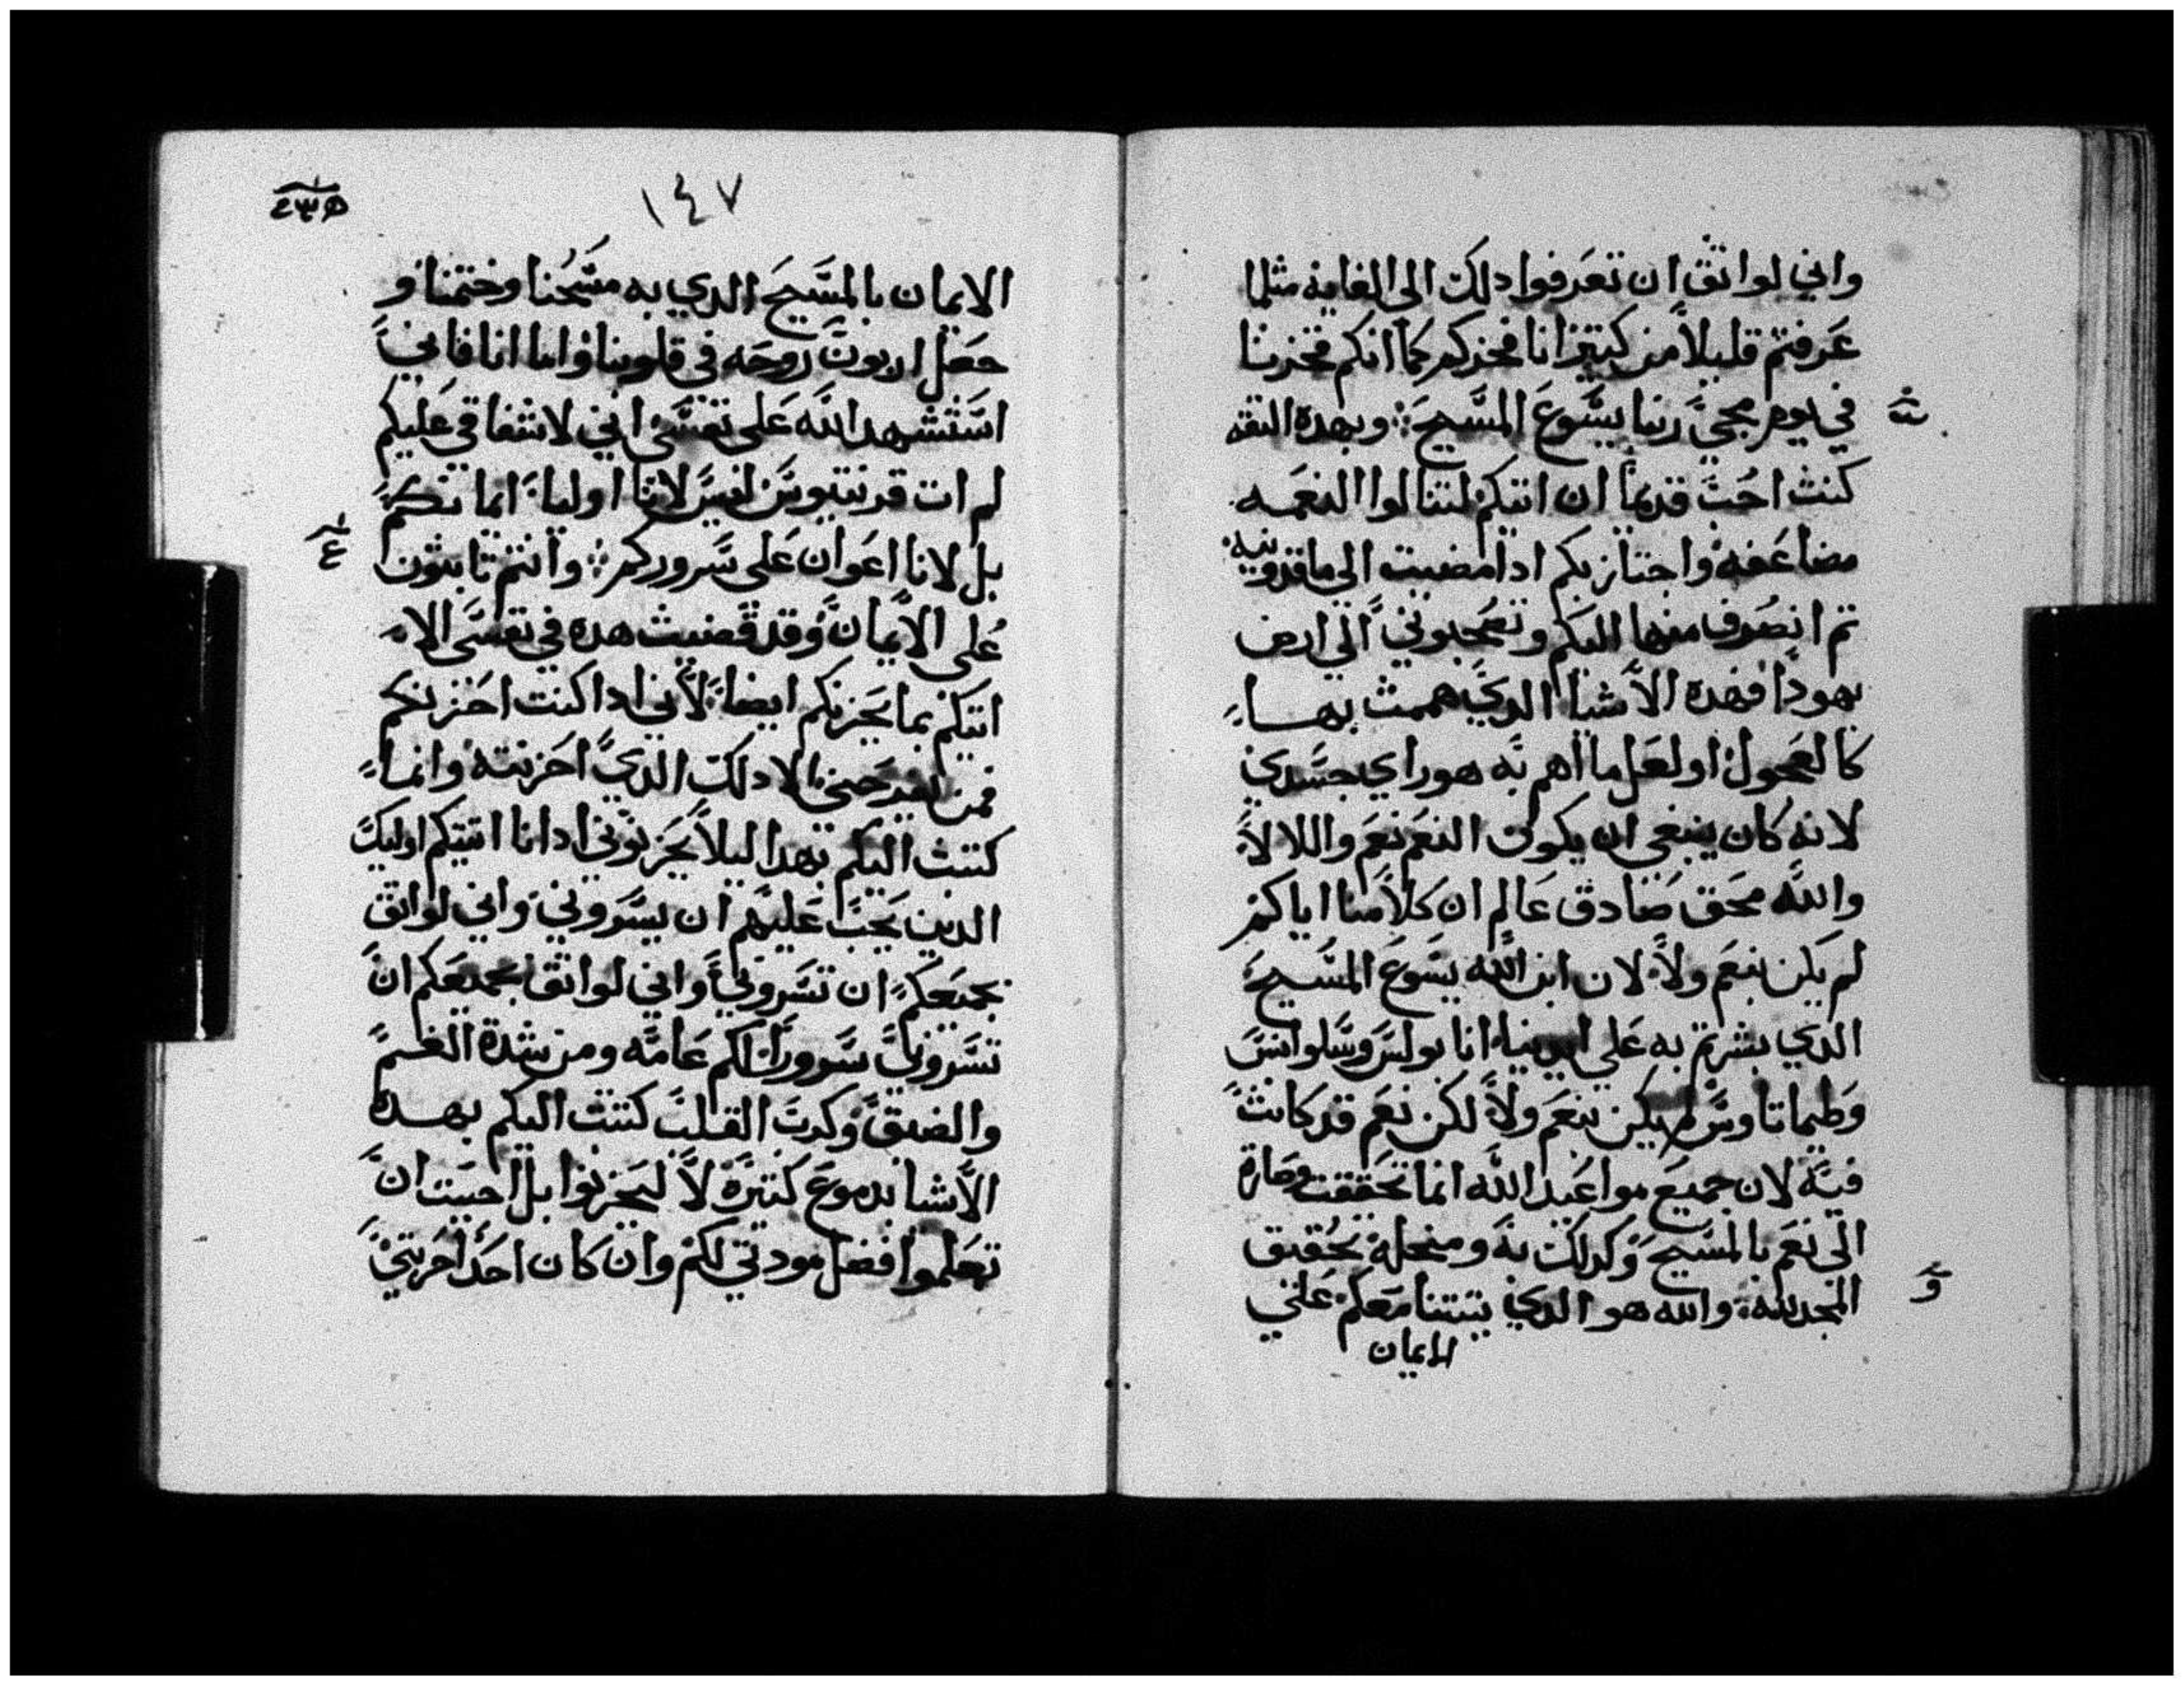 واني لواثق ان تعرفوا دلك الى الغايه مثلما
عرفتم قليلاً من كتير انا فخركم كما انكم فخرنا
في يوم مجي ربنا يسوع المسيح ؞ وبهده التقه
كنت احب قديماً ان اتيكم لتنالوا النعمه
مضاعفه واجتاز بكم ادا مضيت الى ماقدونيه
تم انصرف منها اليكم وتصحبوني الى ارض
يهودا فهده الاشيا الدي هممت بهـا
كالعجول او لعل ما اهم به هو راي جسدي
لانه كان ينبغي ان يكون النعم نعم واللا لا
والله محق صادق عالم ان كلامنا اياكم
لم يكن بنعم ولا لان ابن الله يسوع المسيح
الدي بشرتم به على ايدينا انا بولس وسلوانس
وطيماتاوس لم يكن بنعم ولا لكن نعم قد كانت
فيه لان جميع مواعيد الله انما تحققت وصارة
الى نعم بالمسيح وكدلك به ومنحله تحقيق
المجد لله ؞ والله هو الدي يتبتنا معكم على
الايمان
١٤٧
الايمان بالمسيح الدي به مسحنا وختمنا و
جعل اربون روحه في قلوبنا واما انا فاني
استشهد الله على نفسي اني لاشفاقي عليكم
لم ات قرنتيوس ليس لانا اوليا ايمانكم
بل لانا اعوان على سروركم ؞ وانتم تابتون
على الايمان وقد قضيت هده في نفسي الا
اتيكم بما يحزنكم ايضا لاني ادا كنت احزنكم
فمن يفرحني الا دلك الدي احزنته وانما
كتبت اليكم بهدا ليلا يحزنوني ادا انا اتيتكم اوليك
الدين يجب عليهم ان يسروني واني لواتق
بجمعكم ان تسروني واني لواتق بجمعكم ان
تسروني سروراً لكم عامه ومن شدة الغم
والضيق وكرب القلب كتبت اليكم بهـده
الاشيا بدموع كتيرة لا لتحزنوا بل احببت ان
تعلموا فضل مودتي لكم وان كان احد احزنني